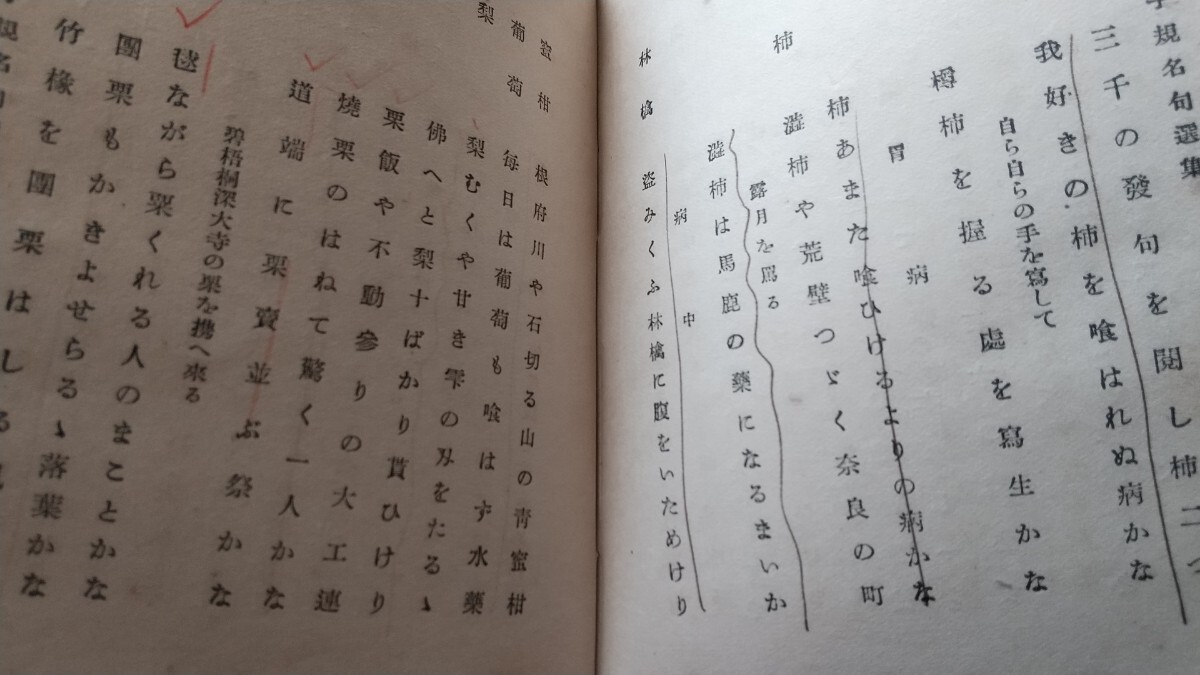 規名句選集
三千の發句を閲し柿二つ
我好きの柿を喰はれぬ病かな
自ら自らの手を寫して
樽柿を握る處を寫生かな
胃病
柿あまた喰ひけるよりの病かな
柿
澁柿や荒壁つゞく奈良の町
露月を罵る
澁柿は馬鹿の藥になるまいか
病中
林檎
盜みくふ林檎に腹をいためけり
蜜柑
根府川や石切る山の靑蜜柑
葡萄
毎日は葡萄も喰はず水藥
梨
梨むくや甘き雫の刄をたるゝ
佛へと梨十ばかり貰ひけり
栗飯や不動參りの大工連
燒栗のはねて驚く一人かな
道端に栗賣並ぶ祭かな
碧梧桐深大寺の栗を携へ來る
毬ながら栗くれる人のまことかな
團栗もかきよせらるゝ落葉かな
竹椽を團栗はしる